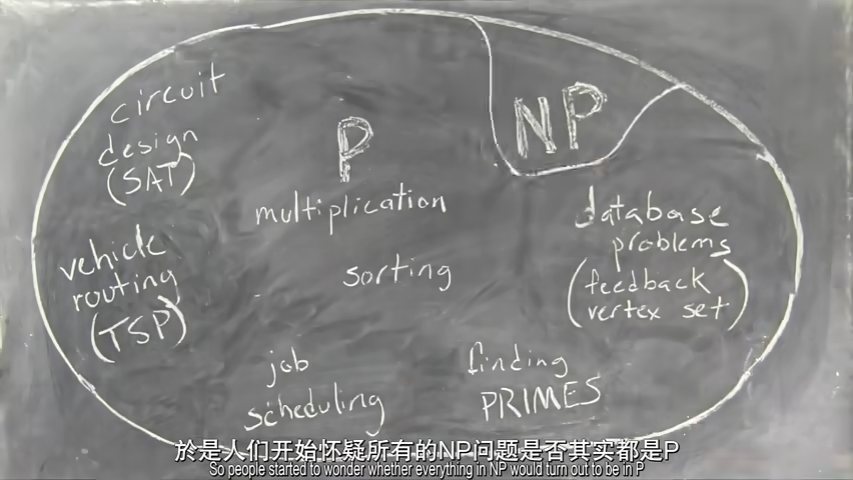 circuit
design
(SAT)
P
NP
multiplication
database
problems
(feedback
vertex set)
vehicle
routing
(TSP)
sorting
job
scheduling
finding
PRIMES
於是人们开始怀疑所有的NP问题是否其实都是P
So people started to wonder whether everything in NP would turn out to be in P